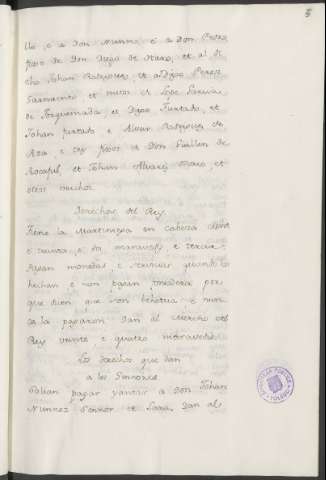 5
lla, e a Don Nunno, e a Don Pedro
fijos de Don Diego de Haro, et al di
cho Johan Rodriguez, et a Diego Perez
Sarmiento et
de Torquemada, et Diego Furtado, et
Johan furtado e Alvar Rodriguez de
Aza, e los fijos de Don Guillen de
Rocaful, et Johan Alvarez Osorio, et
otros muchos.
Derechos del Rey
Tiene la Martiniega en cabeza
e treinta, e dos maravedis e tercia.
monedas e servicios quando lo
hechan e non pagan fonsadera por
que dicen que son behetria e nun
ca la pagaron. Dan al Merino del
Rey veinte e quatro maravedis.
Los derechos que dan
a los Sennores.
Solian pagar yantar a Don Johan
Nunnez Sennor de Lara, dan al
BIBLIOTECA PUBLICA
TOLEDO